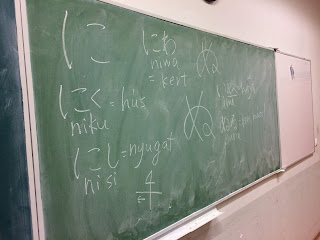 に
にく = hús
niku
にし = nyugat
nisi
にわ
niwa
= kert
4
ぬ
ぬ